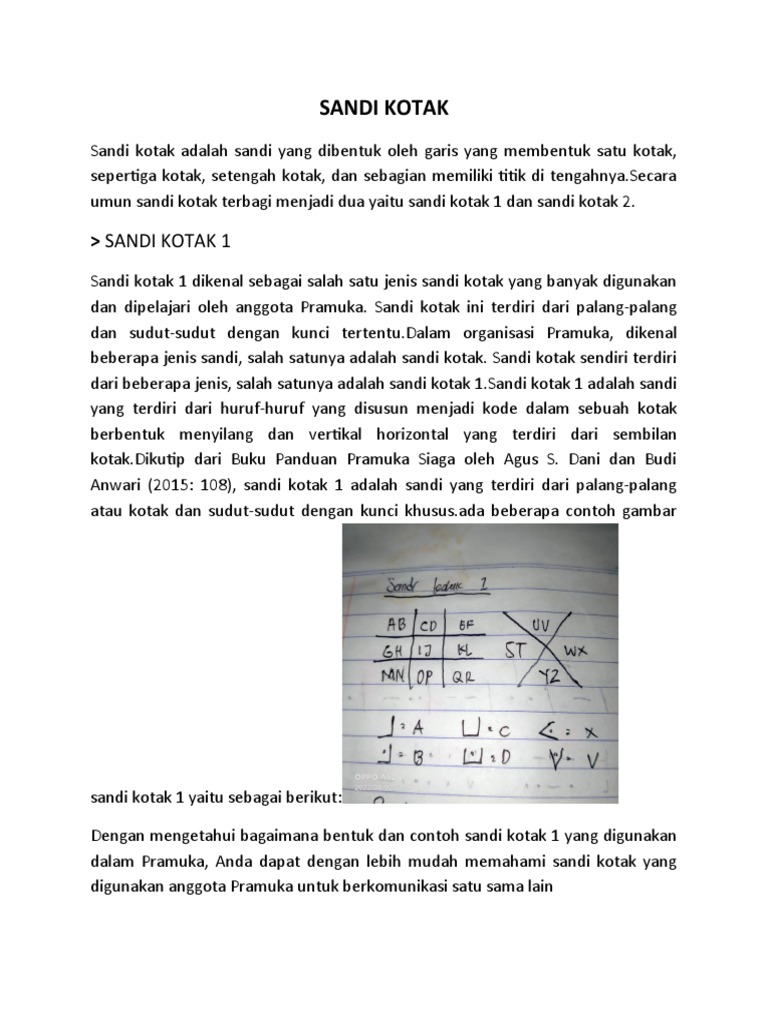 SANDI KOTAK
Sandi kotak adalah sandi yang dibentuk oleh garis yang membentuk satu kotak,
sepertiga kotak, setengah kotak, dan sebagian memiliki titik di tengahnya.Secara
umun sandi kotak terbagi menjadi dua yaitu sandi kotak 1 dan sandi kotak 2.
> SANDI KOTAK 1
Sandi kotak 1 dikenal sebagai salah satu jenis sandi kotak yang banyak digunakan
dan dipelajari oleh anggota Pramuka. Sandi kotak ini terdiri dari palang-palang
dan sudut-sudut dengan kunci tertentu.Dalam organisasi Pramuka, dikenal
beberapa jenis sandi, salah satunya adalah sandi kotak. Sandi kotak sendiri terdiri
dari beberapa jenis, salah satunya adalah sandi kotak 1.Sandi kotak 1 adalah sandi
yang terdiri dari huruf-huruf yang disusun menjadi kode dalam sebuah kotak
berbentuk menyilang dan vertikal horizontal yang terdiri dari sembilan
kotak.Dikutip dari Buku Panduan Pramuka Siaga oleh Agus S. Dani dan Budi
Anwari (2015: 108), sandi kotak 1 adalah sandi yang terdiri dari palang-palang
atau kotak dan sudut-sudut dengan kunci khusus.ada beberapa contoh gambar
1
AB CD EF UV
GH IJ KL ST WX
MN OP QR YZ
= A = C = X
= B = D = V
OPPO
sandi kotak 1 yaitu sebagai berikut:
Dengan mengetahui bagaimana bentuk dan contoh sandi kotak 1 yang digunakan
dalam Pramuka, Anda dapat dengan lebih mudah memahami sandi kotak yang
digunakan anggota Pramuka untuk berkomunikasi satu sama lain